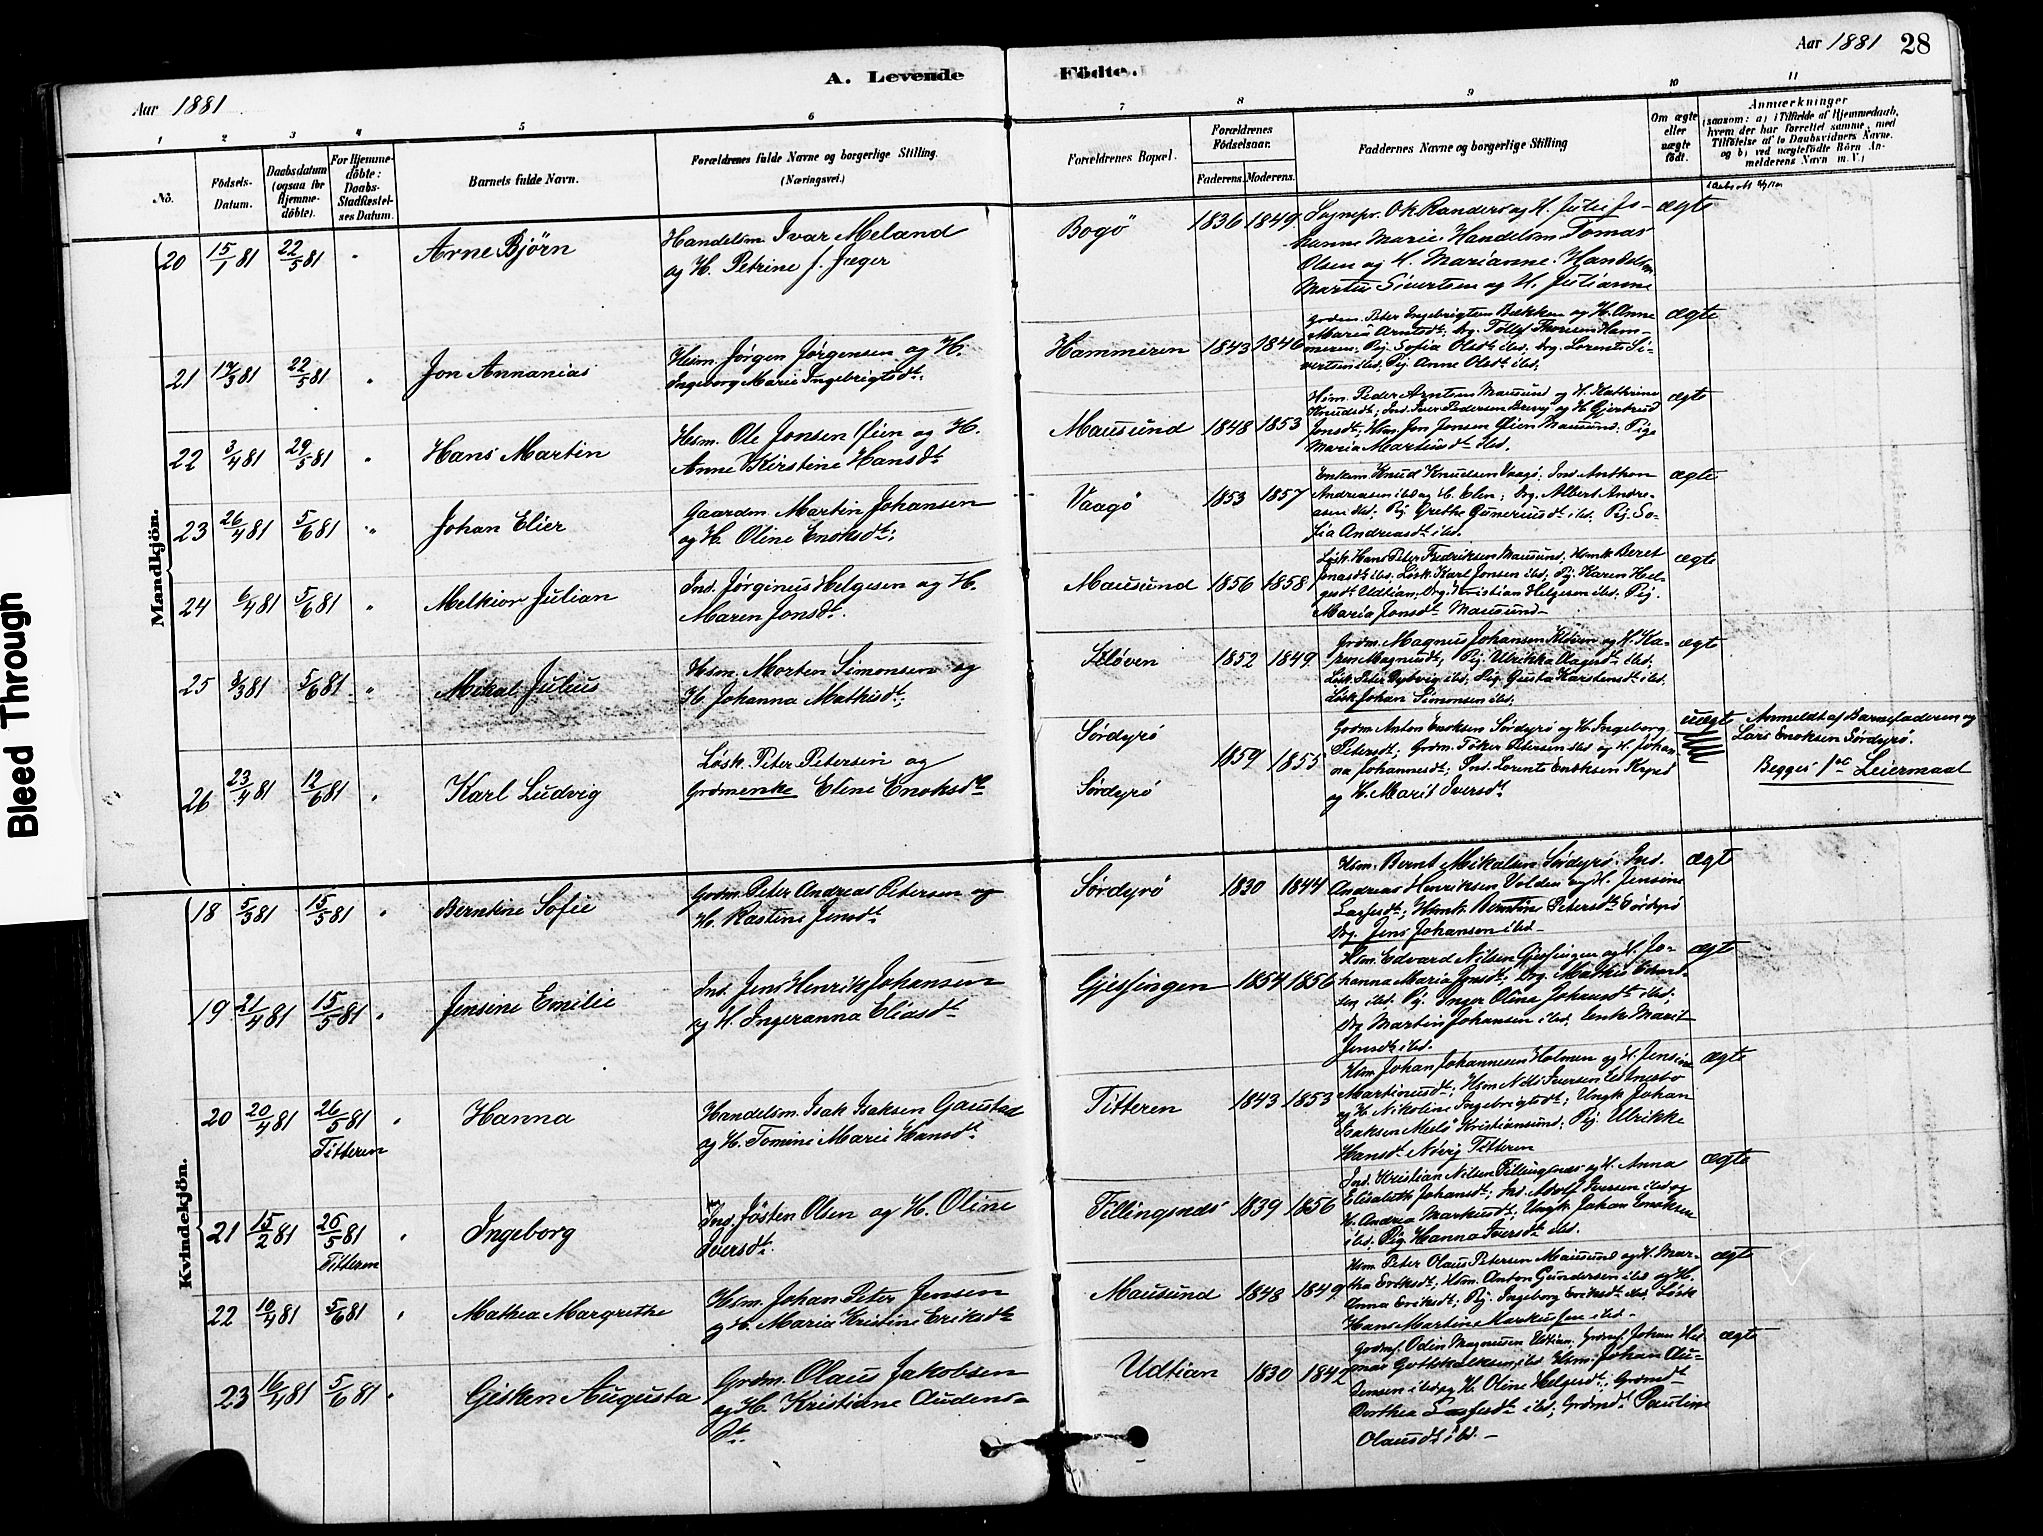 Aar 1881
A. Levende
Födte.
Aar 1881 28
1 2 3 4 5 6 7 8 9 10 11
No.
Födsels-Datum.
Daabsdatum (ogsaa for Hjemme-döbte).
For Hjemme-döbte: Daabs-Stadfæstel-ses Datum.
Barnets fulde Navn.
Forældrenes fulde Navne og borgerlige Stilling. (Næringsvei.)
Forældrenes Bopæl.
Forældrenes Födselsaar.
Faderens. Moderens.
Faddernes Navne og borgerlige Stilling
Om ægte eller uægte födt.
Anmærkninger
(saasom: a) i Tilfælde af Hjemmedaab,
hvem der har forrettet samme, med
Tilföielse af to Daabsvidners Navne.
og b) ved uægtefödte Börn An-
melderens Navn m. V.)
Mandkjön.
20 15/1 81 22/5 81 " Arne Bjørn
Handelsm. Ivar Meland
og H. Petrine f. Jæger
Bogö 1836 1849
Sognepr. O.K. Randers og H. Julie Jo-
hanne Marie. Handelsm. Tomas
Olsen og H. Marianne. Handelsm.
Martin Sivertsen og H. Julianne
ægte
21 17/3 81 22/5 81 " Jon Annanias
Husm. Jørgen Jørgensen og H.
Ingeborg Marie Ingebrigtsdt.
Hammeren 1843 1846
Grdm. Peter Ingebrigtsen Bekken og H. Anne
Maria Arntsdt; Ug. Tollef Thoresen Ham-
meren; Pig. Sofia Olsdt ibd; Ug. Lorents Si-
vertsen ibd; Pig. Anne Olsdt ibd.
ægte
22 3/4 81 29/5 81 " Hans Martin
Hsm. Ole Jonsen Øien og H.
Anne Kirstine Hansdt
Mausund 1848 1853
Hsm. Peder Arntsen Mausund og H. Kathrine
Knudsdt; Ind. Iver Pedersen Berg og H. Gjertrud
Jonsdt; Hsm. Jon Jonsen Øien Mausund; Pige
Maria Martinsdt ibd.
ægte
23 26/4 81 5/6 81 " Johan Elier
Gaardm. Martin Johansen
og H. Oline Enoksdt.
Vaagö 1853 1857
Enkem. Knud Knudsen Vaagö. Ind. Anthon
Andreasen ibd og H. Elen; Ug. Albert Andre-
asen ibd; Pig. Grethe Guneriusdt ibd; Pig. So-
fia Andreasdt ibd.
ægte
24 6/4 81 5/6 81 " Melkior Julian
Ind. Jørginus Helgesen og H.
Maren Jonsdt.
Mausund 1856 1858
Løsk. Hans Peter Fredriksen Mausund; Hsmk Beret
Jonasdt ibd. Løsk. Karl Jonsen ibd; Pig. Karen Hel-
gesdt Udtian; Ug. Kristian Helgesen ibd. Pig.
Maria Jonsdt Mausund
ægte
25 9/3 81 5/6 81 " Mikal Julius
Hsm. Morten Simonsen og
H. Johanna Mathisdt.
Kløven 1852 1849
Grdm. Magnus Johansen Kløven og H. Ka-
ren Magnusdt; Pig. Ulrikka Aagesdt ibd;
Løsk. Peter Dybvig ibd; Pig. Gusta Karstensdt ibd.
Løsk. Johan Simonsen ibd.
ægte
26 23/4 81 12/6 81 " Karl Ludvig
Løsk. Peter Petersen og
Grdmenke Eline Enoksdt
Sørdyrö
Sørdyrö
1859 1855
Grdm. Anton Enoksen Sørdyrö og H. Ingeborg
Petersdt; Grdm. Töker Petersen ibd og H. Johan-
na Johannesdt; Ind. Lorents Enoksen
og H. Marit Iversdt
uægte
Anmeldt af Barnefaderen og
Lars Enoksen Sørdyrö.
Begges 1ste Leiermaal
Kvindekjön.
18 5/3 81 15/5 81 " Berntine Sofie
Grdm. Peter Andreas Petersen og
H. Kastine Jensdt
Sørdyrö 1830 1844
Hsm. Bernt Mikalsen Sørdyrö. Ind.
Andreas Henriksen Volden og H. Jensine
Lassesdt; Hsmk. Berntine Petersdt Sørdyrö
Ug. Jens Johansen ibd
ægt
19 21/4 81 15/5 81 " Jensine Emilie
Ind. Jens Henrik Johansen
og H. Ingeranna Eliasdt
Gjessingen 1854 1856
Hsm. Edvard Nilsen Gjessingen og H. Jo-
hanna Maria Jonsdt; Ug. Mathis
ibd. Pig. Inger Olina Johansdt ibd;
Ug. Martin Johansen ibd; Enke Marit
Jensdt ibd.
ægt
20 20/4 81 26/5 81 Titteren " Hanna
Handelsm. Isak Isaksen Gaustad
og H. Tomine Marie Hansdt.
Titteren 1843 1853
Hsm. Johan Johannesen Holmen og H. Jensine
Martinusdt; Hsm Nils Iversen
og H. Nikoline Ingebrigtsdt; Ungk Johan
Isaksen Kristiansund; Pig. Ulrikke
Hansdt Titteren
ægte
21 15/2 81 26/5 81 Titteren " Ingeborg
Ind. Jösten Olsen og H. Oline
Iversdt.
Tillingsnds 1839 1856
Ind. Kristian Nilsen Tillingsnes og H. Anna
Elisabeth Johansdt; Ind. Adolf Iversen ibd og
H. Andrea Markusdt; Ungk. Johan Enoksen
ibd; Pig. Hanna Iversdt ibd.
ægte
22 10/4 81 5/6 81 " Mathea Margrethe
Hsm. Johan Peter Jensen
og H. Maria Kristine Eriksdt
Mausund 1848 1849
Hsm. Peter Olaus Petersen Mausund og H. Mar-
tha Eriksdt; Hsm. Anton Gundersen ibd og H.
Anna Eriksdt; Pig. Ingeborg Eriksdt ibd. Løsk
Hans Martin Markussen ibd.
ægt
23 16/4 81 5/6 81 " Gisken Augusta
Grdm. Olaus Jakobsen
og H. Kristiane Audens-
dt.
Udtian 1830 1842
Grdmf. Odin Magnusen Udtian. Grdmf. Johan
Gottskalksen ibd. Hsm. Johan Au-
densen ibd og H. Oline Helgesdt; Grdmdt
Dorthea Lassesdt ibd; Grdmdt. Pauline
Olausdt ibd.
ægte
Bleed Through